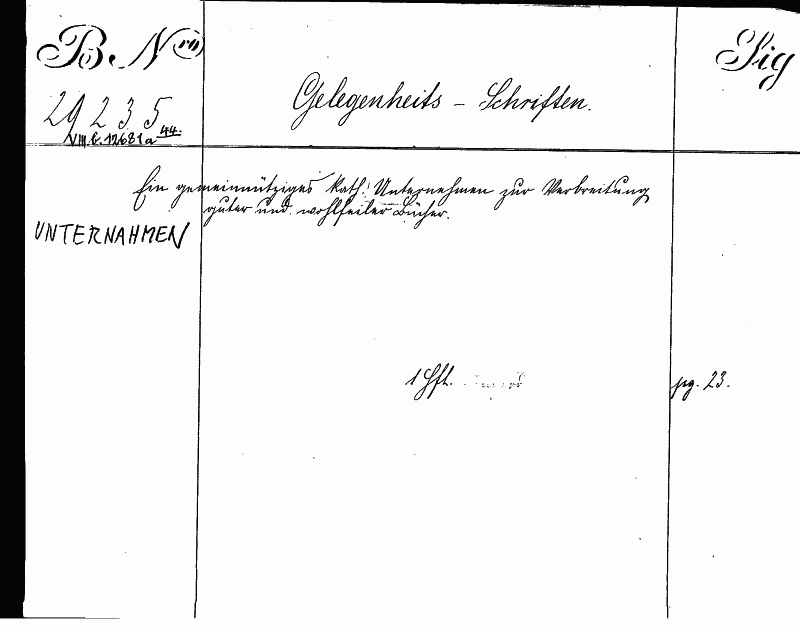 B. Nro
Sig
29235
VIII.b.12681a 44.
Gelegenheits - Schriften.
Ein gemeinnütziges kath. Unternehmen zur Verbreitung
guter und wohlfeiler Bücher.
UNTERNAHMEN
1 Hft.
pg. 23.